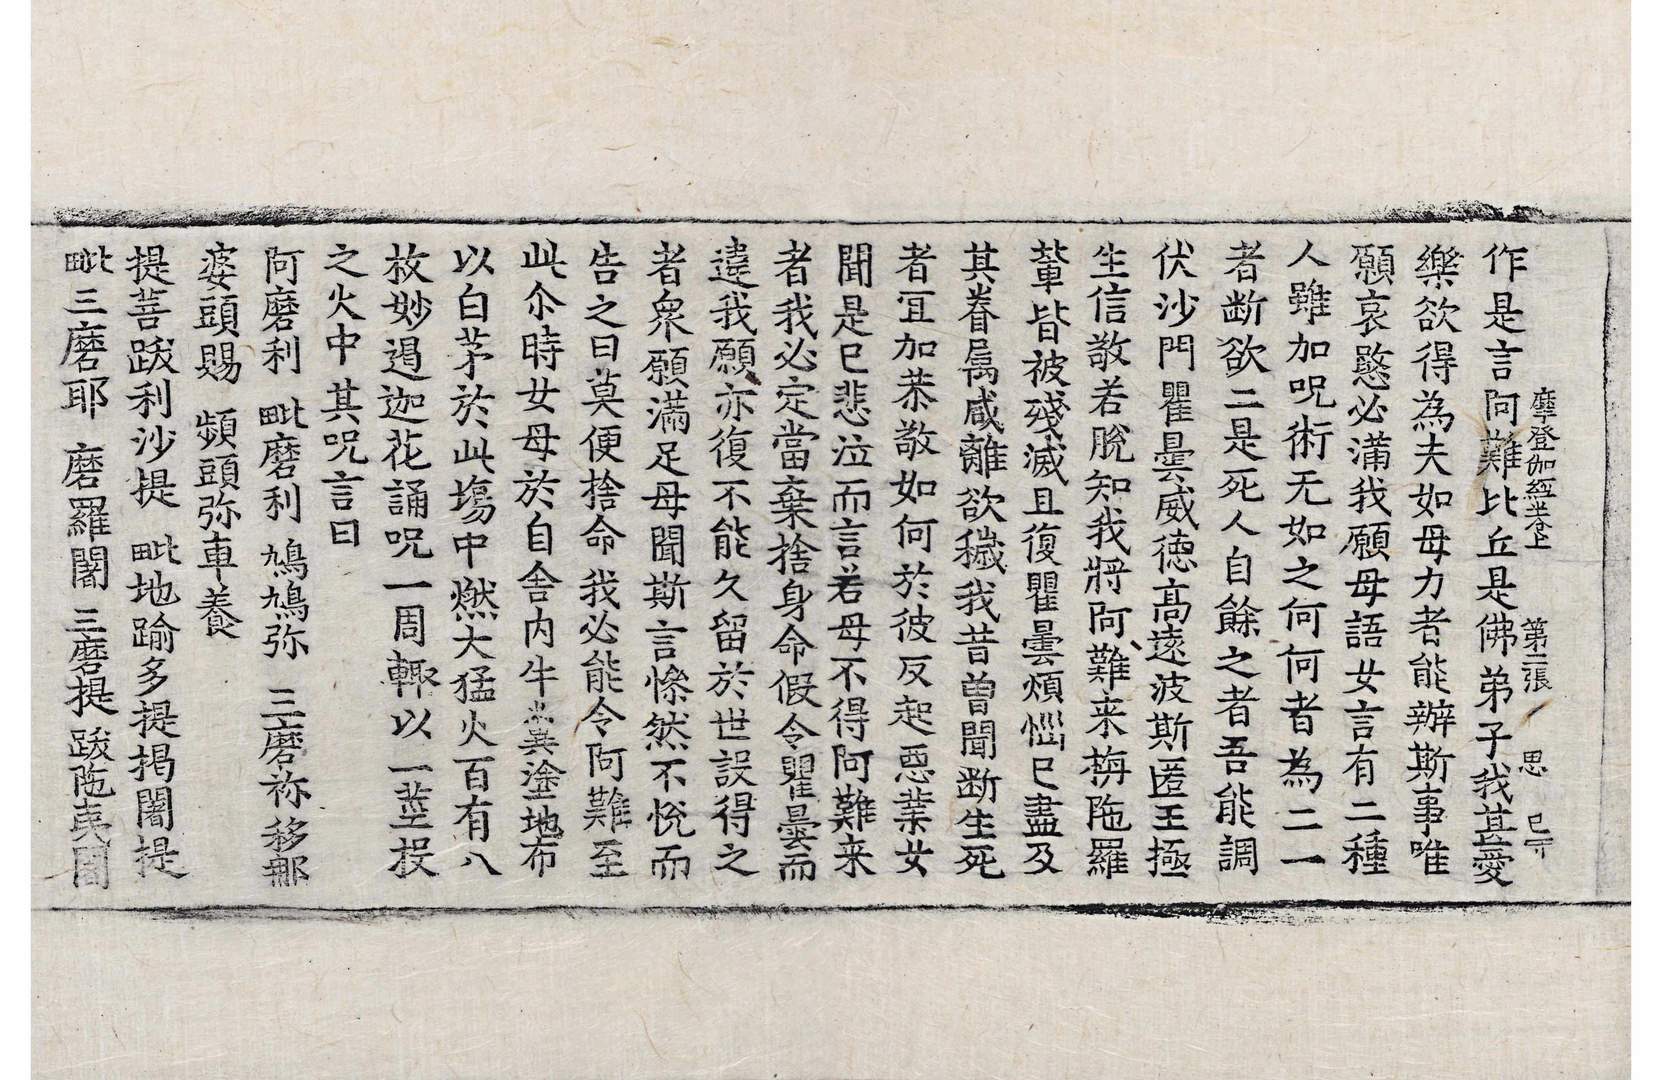 摩登伽經卷上 第二張 思
作是言阿難比丘是佛弟子我甚愛
樂欲得為夫如母力者能辦斯事唯
願哀愍必滿我願母語女言有二種
人雖加呪術无如之何何者為二一
者断欲二是死人自餘之者吾能調
伏沙門瞿曇威徳髙逺波斯匿王極
生信敬若脫知我將阿難来栴陁羅
軰皆被殘滅且復瞿曇煩惱已盡及
其眷属咸離欲穢我昔曽聞断生死
者冝加恭敬如何於彼反起惡業女
聞是已悲泣而言若母不得阿難来
者我必定當棄捨身命假令瞿曇而
違我願亦復不能久留於世設得之
者衆願滿足母聞斯言慘然不恱而
告之曰莫便捨命我必能令阿難至
此尒時女母於自舍内牛糞塗地布
以白茅於此塲中燃大猛火百有八
枚妙遏迦花誦呪一周輙以一莖投
之火中其呪言曰
阿磨利 毗磨利 鳩鳩弥 三磨祢移那
婆頭賜 頻頭弥車養
提菩跋利沙提 毗地踰多提揭闍提
毗三磨耶 磨羅闍 三磨提跋陁夷闍